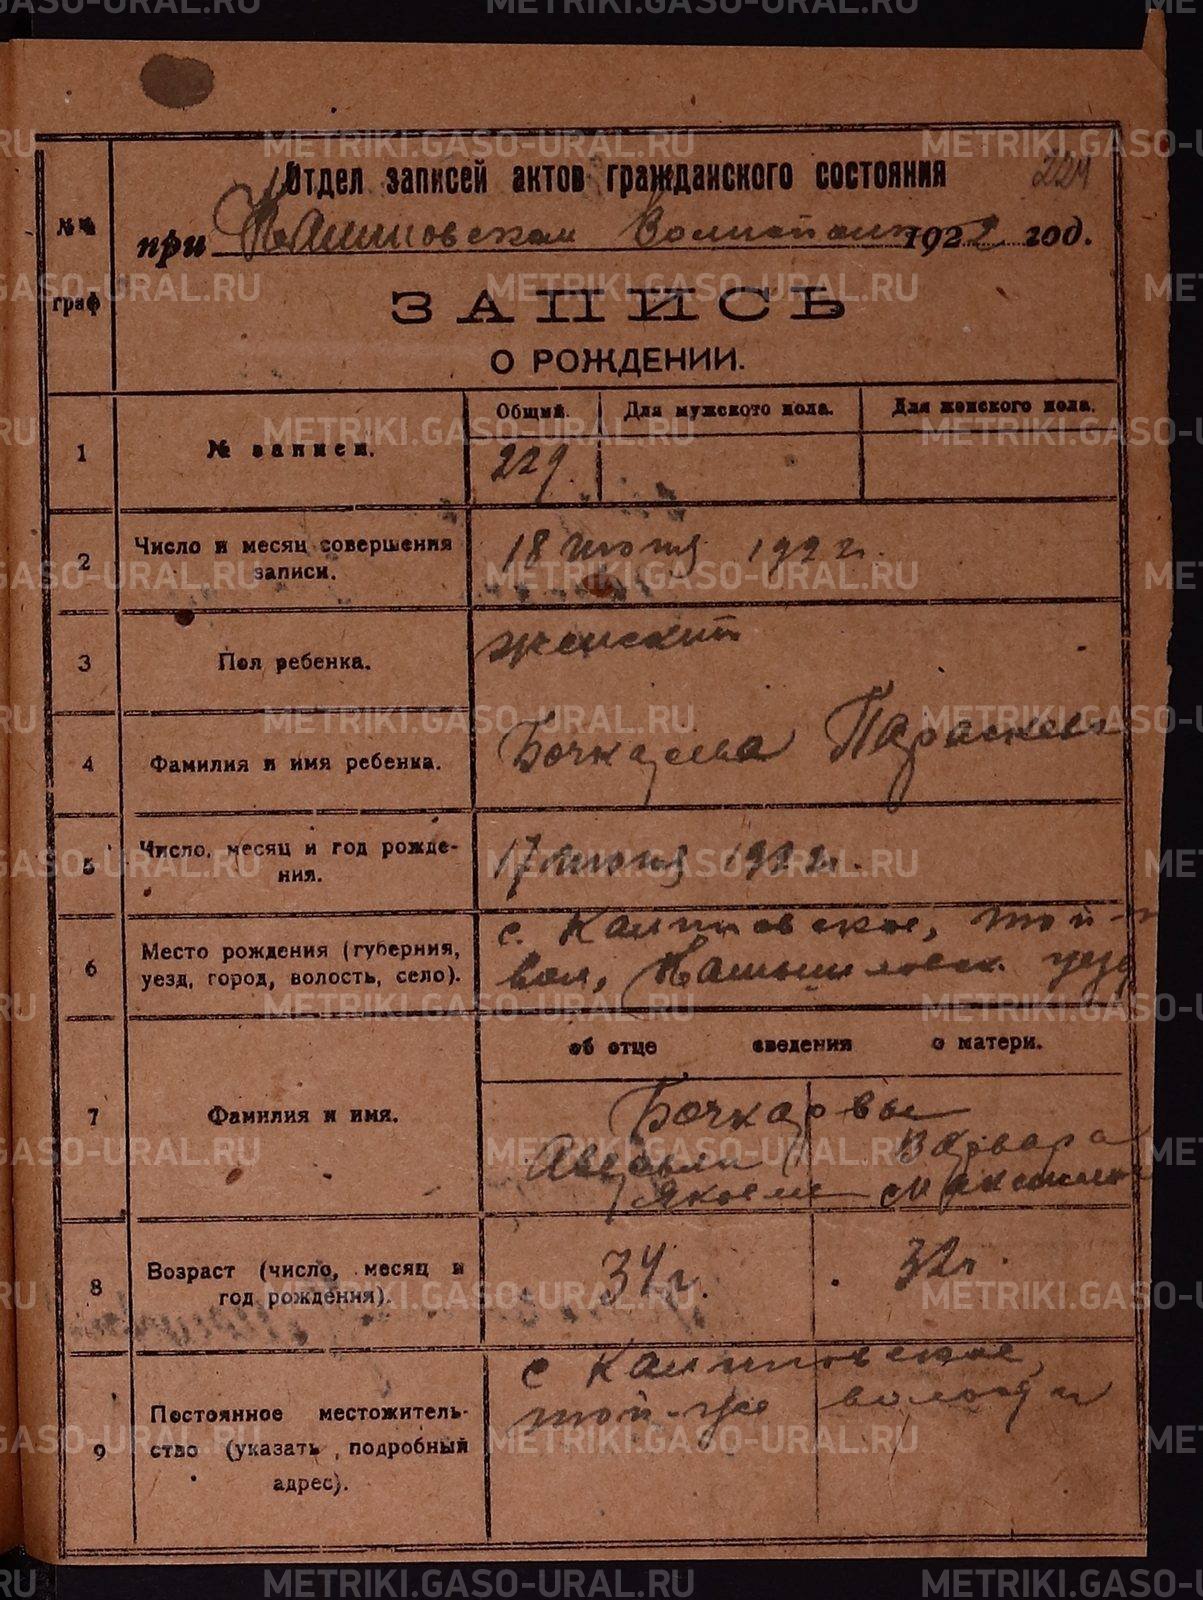 METRIKI.GASO-URAL.RU
224
Отдел записей актов гражданского состояния
при Калиновском Волисполк 1922 год.
№№ граф
ЗАПИСЬ
О РОЖДЕНИИ.
Общий. Для мужского пола. Для женского пола.
1 № записи. 229.
2 Число и месяц совершения
записи.
18 июня 1922 г.
3 Пол ребенка. женский
4 Фамилия и имя ребенка. Бочкарева
5 Число, месяц и год рожде-
ния.
17 июня 1922 г.
6 Место рождения (губерния,
уезд, город, волость, село).
с. Калиновское, той-
вол, Камышловск. уезд
об отце сведения о матери.
7 Фамилия и имя. Бочкаревы
Варвара
8 Возраст (число, месяц и
год рождения).
34 г. 32 г.
9 Постоянное местожитель-
ство (указать подробный
адрес).
с Калиновское,
той-же волости